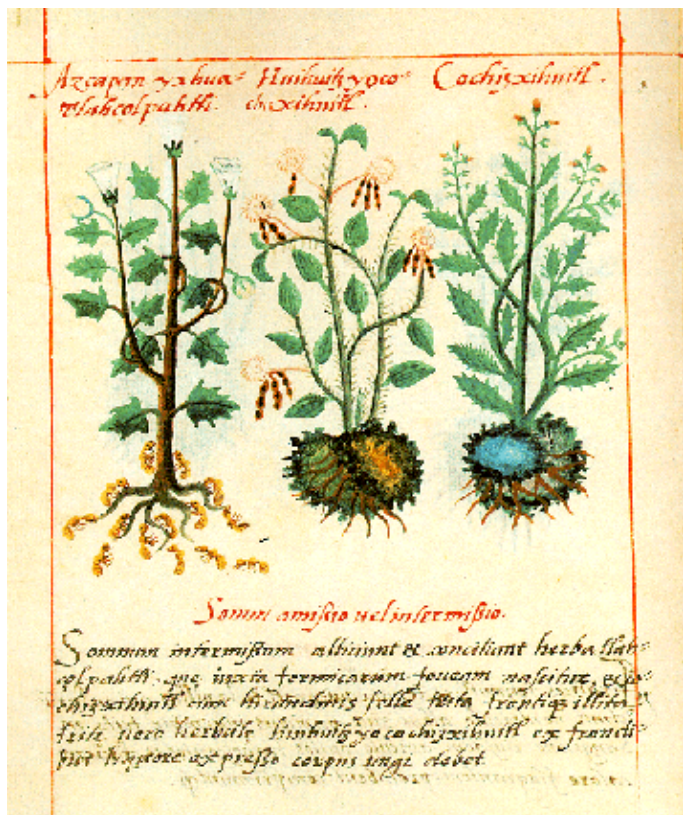 Azcapan yxhua- Huihuitzyoco- Cochizxihuitl.
tlahçolpahtli. chizxihuitl.
Somni amissio uel intermissio.
Somnum intermissum alliciunt & conciliant herba tlah-
çolpahtli, que iuxta formicarum foueam nascitur, & co-
chizxihuitl cum hirundinis felle trita frontique illita.
herbulę huihuitzyocochizxihuitl ex frondi-
liquore expresso corpus ungi debet